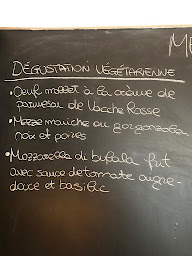 ME
DÉGUSTATION VÉGÉTARIENNE
•Oeuf mollet à la crème de
parmesan de Vache Rosse
•Mezze maniche au gorgonzola
noix et poires
•Mozzarella di bufala frit
avec sauce de tomate aigre-
douce et basilic